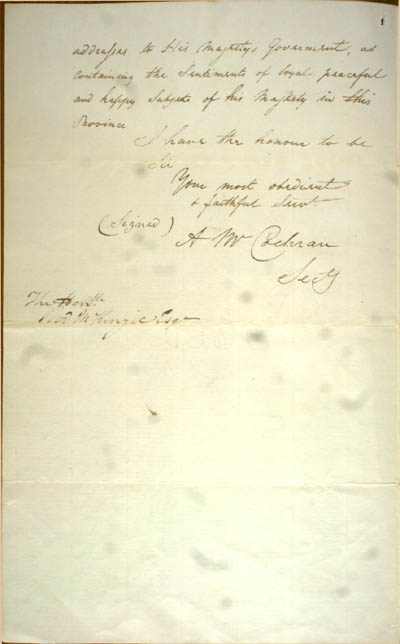 addresses to His Majestys Goverment, as
containing the Sentiments of loyal peaceful
and happy Subjects of his Majesty in this
Province
I have the honour to be
Sir
Your most obedient
& faithful Servt.
(Signed) A W Cochran
Secy
The Honble
McKenzie Esqr